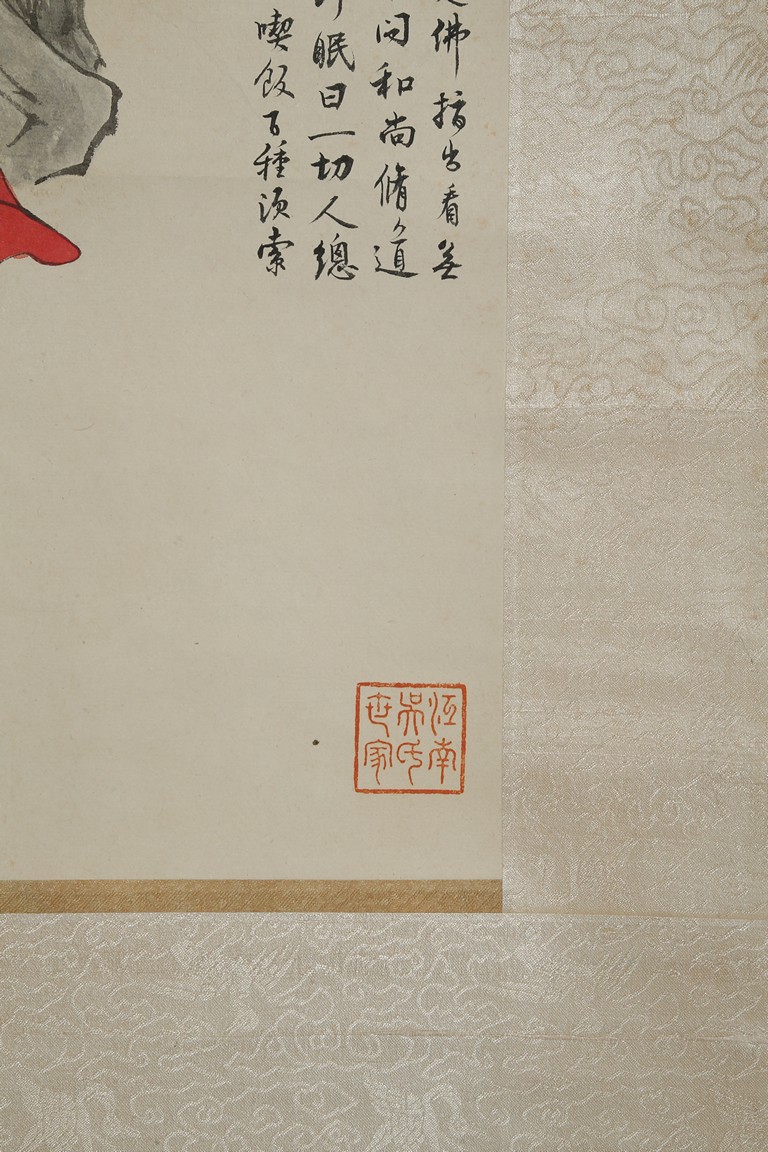 佛指出看無
问和尚脩道
眠曰一切人總
喫飯百種須索
江南吳氏世家